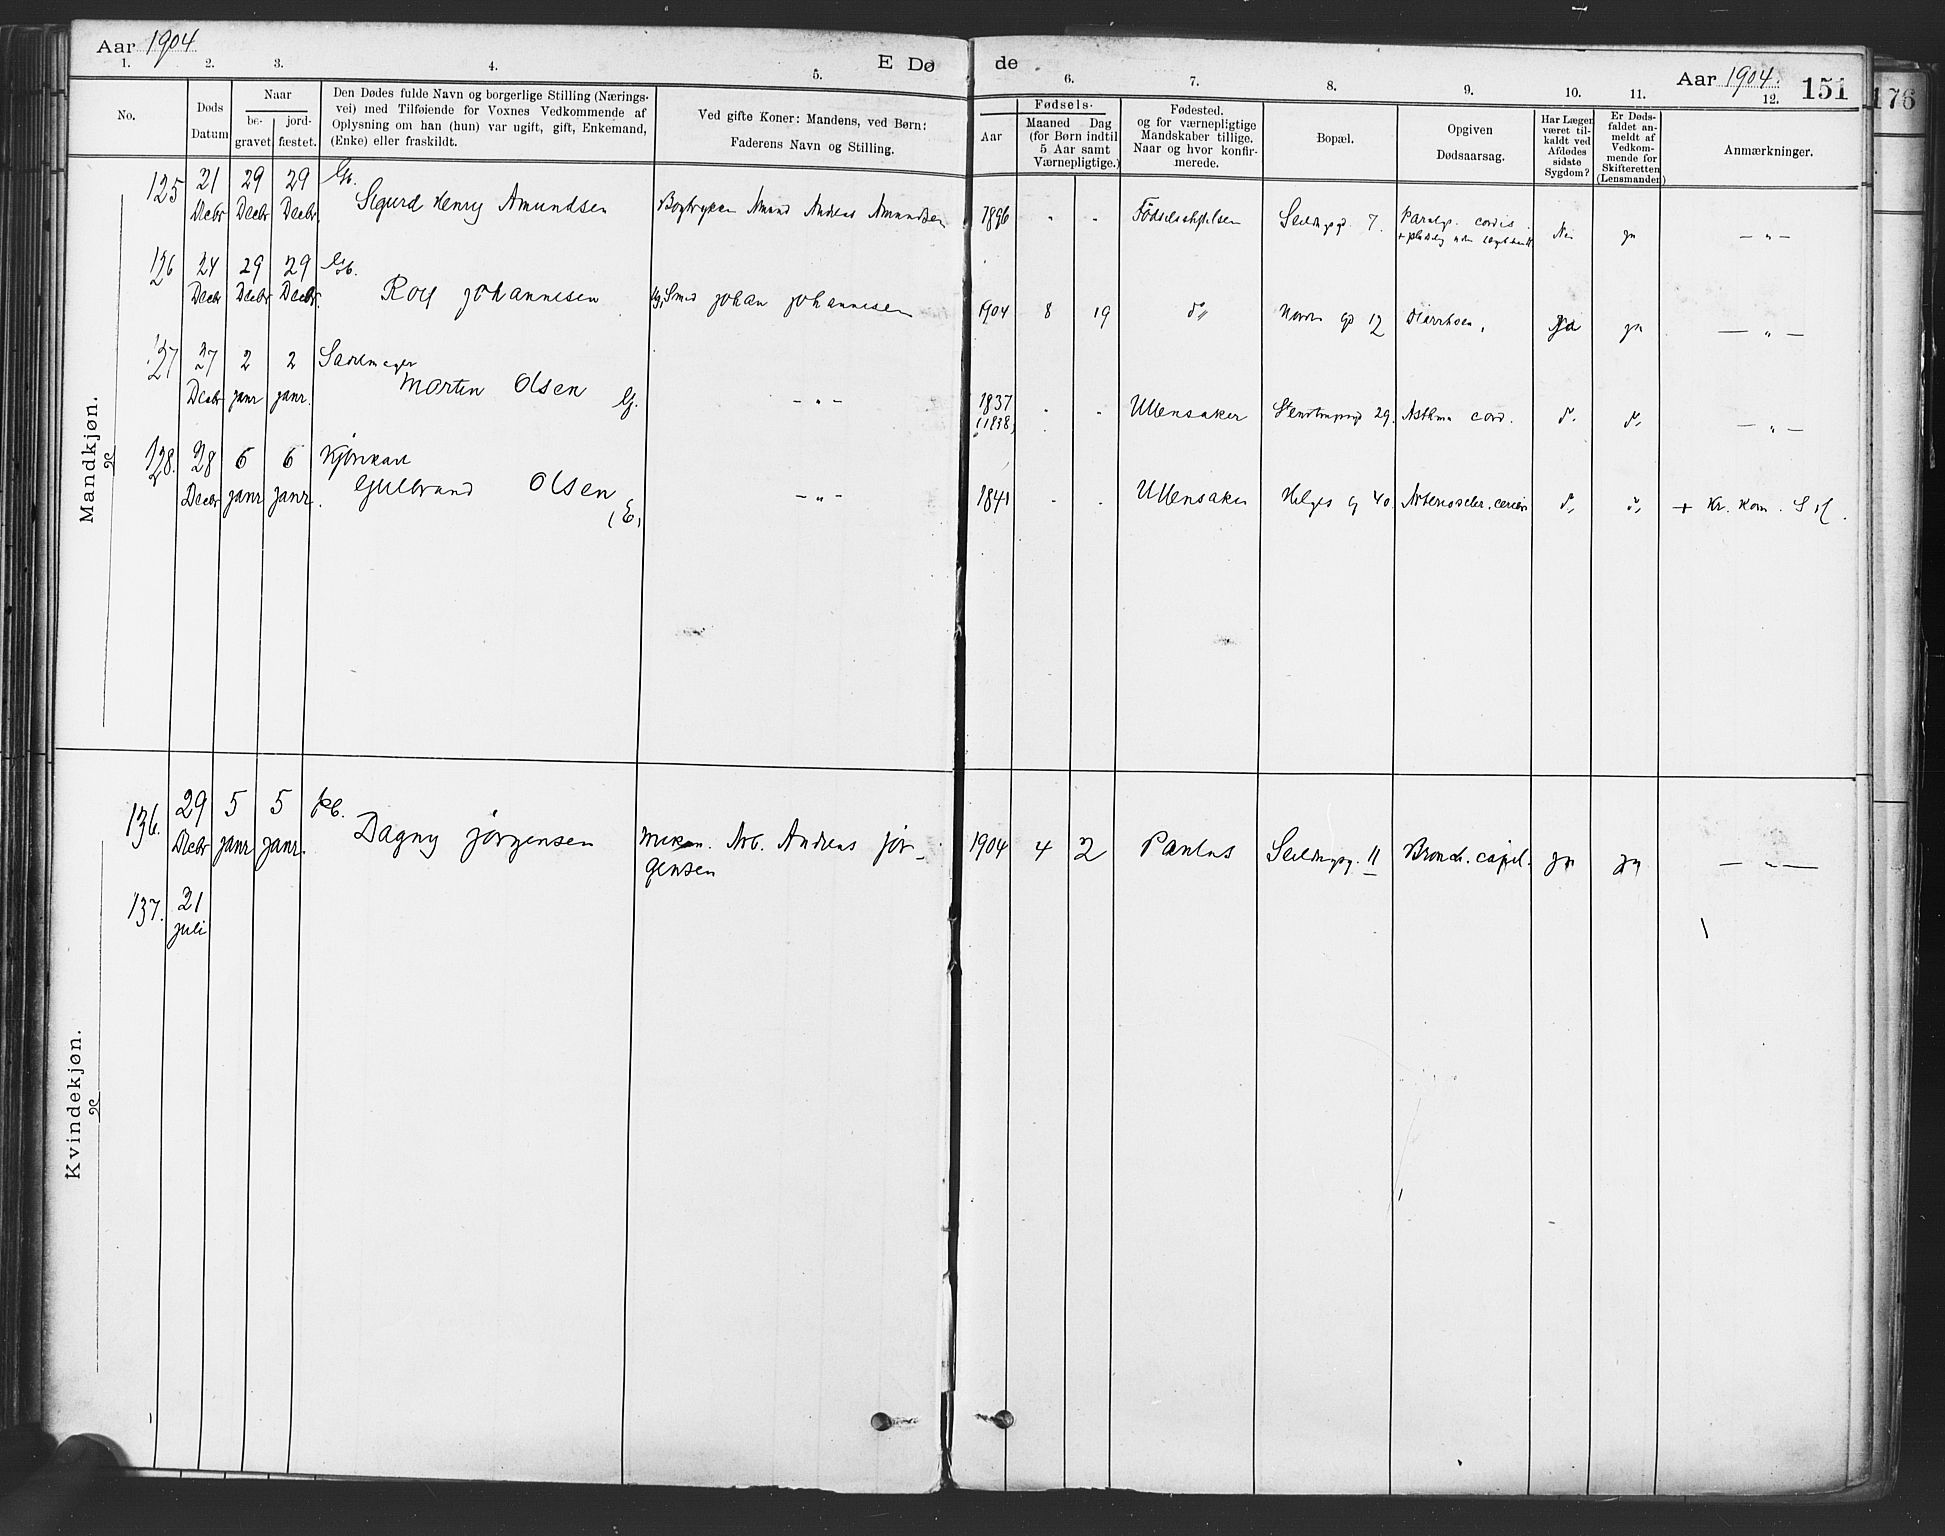 Aar 1904
E Dø
de
Aar 1904.
151
176
1. 2. 3. 4. 5. 6. 7. 8. 9. 10. 11. 12.
No.
Døds
Datum
Naar
be-
gravet
jord-
fæstet.
Den Dødes fulde Navn og borgerlige Stilling (Nærings-
vei) med Tilføiende for Voxnes Vedkommende af
Oplysning om han (hun) var ugift, gift, Enkemand,
(Enke) eller fraskildt.
Ved gifte Koner: Mandens, ved Børn:
Faderens Navn og Stilling.
Fødsels-
Aar
Maaned Dag
(for Børn indtil
5 Aar samt
Værnepligtige.)
Fødested.
og for værnepligtige
Mandskaber tillige.
Naar og hvor konfir-
merede.
Bopæl.
Opgiven
Dødsaarsag.
Har Lægen
været til-
kaldt ved
Afdødes
sidste
Sygdom?
Er Døds-
faldet an-
meldt af
Vedkom-
mende for
Skifteretten
(Lensmanden)
Anmærkninger.
Mandkjøn.
125 21 Decbr 29 Decbr 29 Decbr.
Sigurd Henry Amundsen
Amund Andreas Amundsen
1896 " " Fødselsstiftelsen 7. cordis. Nei ja — " —
126 24 Decbr 29 Decbr 29 Decbr.
Rolf Johannesen
Smed Johan Johannesen
1904 8 19 do 12 Diarrhoea, Ja ja — " —
127 27 Decbr 2 janr 2 janr.
Sadelmager
Morten Olsen G.
— " —
1837
(1838)
" " Ullensaker 29. Asthma cord. do do — " —
128. 28 Decbr 6 janr 6 janr.
Kjørekarl
Gulbrand Olsen
(E)
— " —
1841 " " Ullensaker Helges g 40. do do + Kr. Kom.
Kvindekjøn.
136. 29 Decbr 5 janr 5 janr.
Dagny Jørgensen
Mekan. Arb. Andreas Jør-
gensen
1904 4 2 Paulus 11 Bronch. capil. ja ja — " —
137. 21
juli